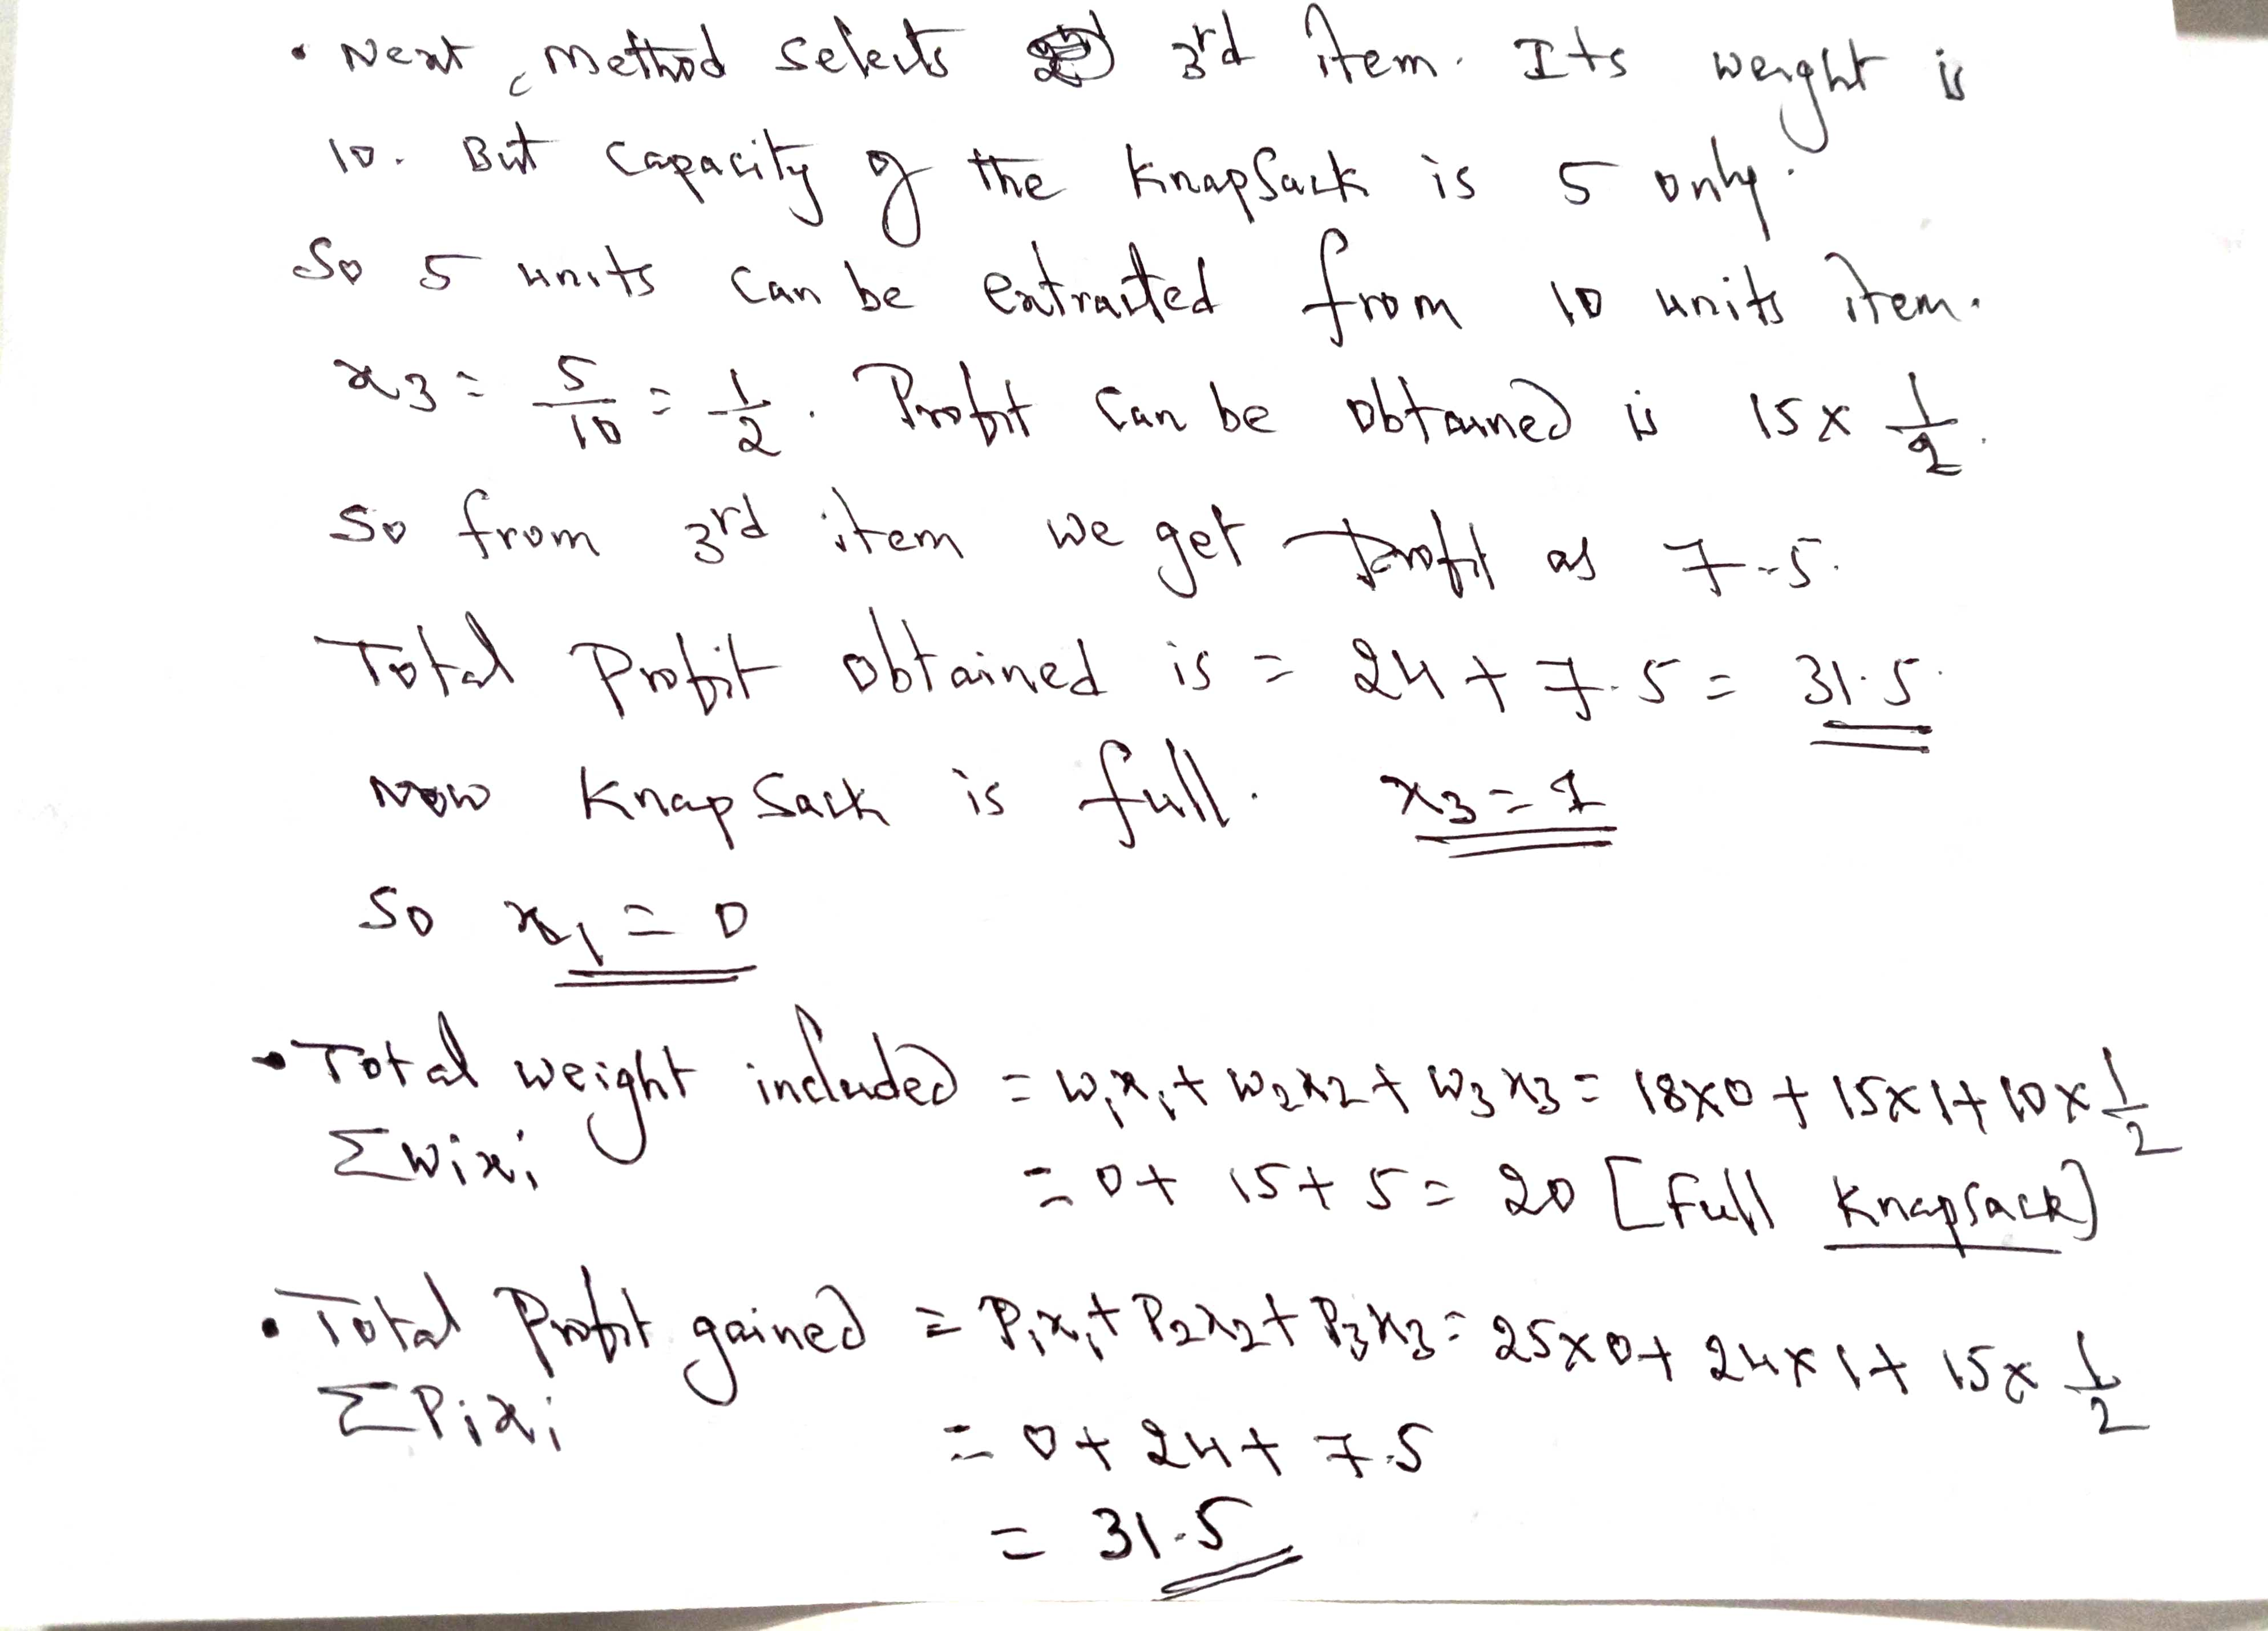 • Next method selects 3rd item. Its weight is
10. But capacity of the Knapsack is 5 only.
So 5 units can be extracted from 10 units item.
x3 = 5/10 = 1/2. Profit can be obtained is 15x 1/2.
So from 3rd item we get Profit as 7.5.
Total Profit obtained is = 24 + 7.5 = 31.5.
Now Knapsack is full. x3 = 1
So x1 = 0
• Total weight included = w1x1 + w2x2 + w3x3 = 18x0 + 15x1 + 10x 1/2
Σwixi
= 0 + 15 + 5 = 20 [Full Knapsack]
• Total Profit gained = P1x1 + P2x2 + P3x3 = 25x0 + 24x1 + 15x 1/2
ΣPixi
= 0 + 24 + 7.5
= 31.5